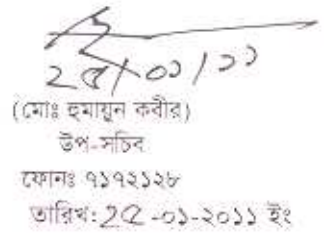 ২৫/০১/১১
(মোঃ হুমায়ুন কবীর)
উপ-সচিব
ফোনঃ ৭১৭২১২৮
তারিখ: ২৫ -০১-২০১১ ইং